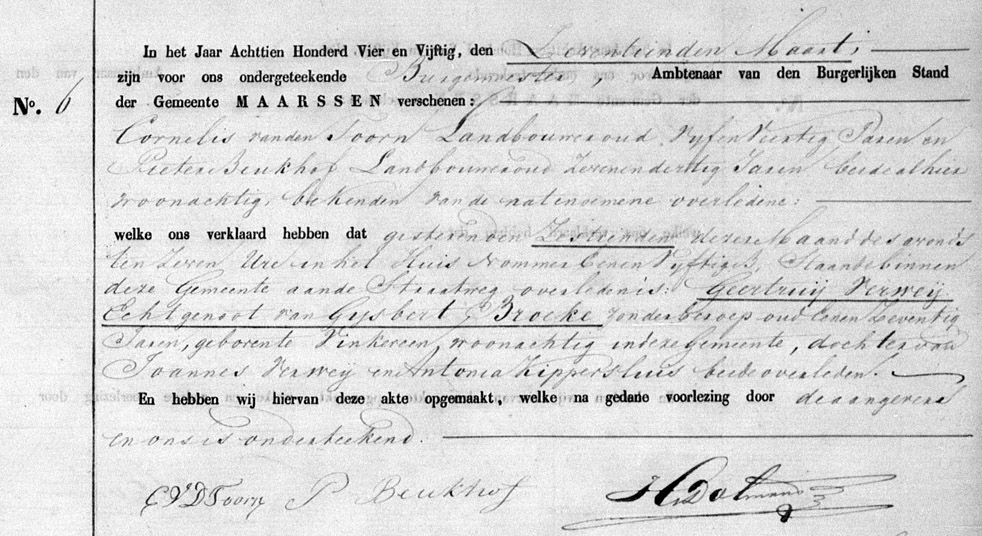 In het Jaar Achttien Honderd Vier en Vijftig, den Zeventienden Maart,
zijn voor ons ondergeteekende Burgemeester, Ambtenaar van den Burgerlijken Stand
No. 6 der Gemeente MAARSSEN verschenen:
Cornelis van den Toorn Landbouwer oud Vijf en Veertig Jaren en
Pieter Beukhof Landbouwer oud Zeven en dertig Jaren beide alhier
woonachtig, bekenden van de natenoemene overledene:
welke ons verklaard hebben dat op den dezer Maand des avonds
ten Zeven Ure in het Huis Nommer Eenen Vyftig B, Staande binnen
deze Gemeente aan de Straatweg overleden is: Geertruij Verweij
Echtgenoot van Gysbert Broeke zonder beroep oud Eenen Zeventig
Jaren, geboren te Vinkeveen, woonachtig in deze Gemeente, dochter van
Joannes Verwey en Antonia Kippersluis beide overleden.
En hebben wij hiervan deze akte opgemaakt, welke na gedane voorlezing door de aangevers
en ons is onderteekend.
C V D Toorn P Beukhof H Dolmans